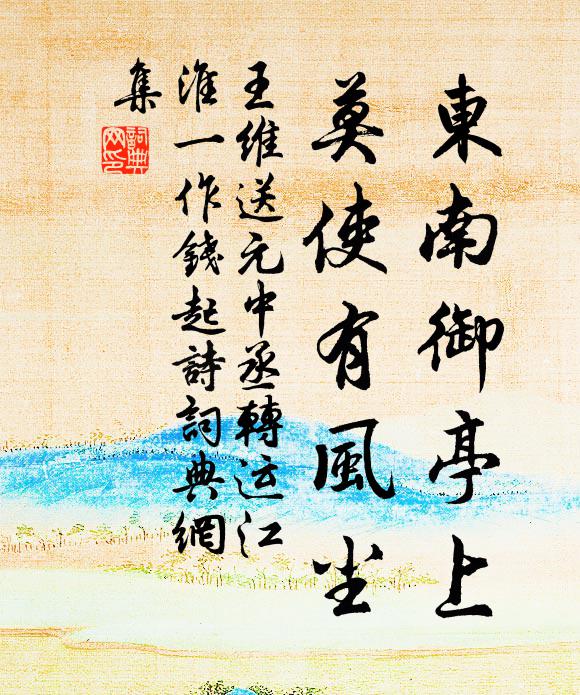 東南御亭上
莫使有風尘
王維送元中丞轉运江
淮一作錢起詩詞典網
集
詞典
网印